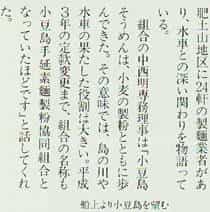 肥土山地区に24軒の製麺業者があ
り、水車との深い関わりを物語って
いる。
組合の中西明専務理事は「小豆島
そうめんは、小麦の製粉とともに歩
んできた。その意味では、島の川や
水車の果たした役割は大きい。平成
3年の定款変更まで、組合の名称も
小豆島手延素麵製粉協同組合と
なっていたほどです」と話してくれ
船上より小豆島を望む